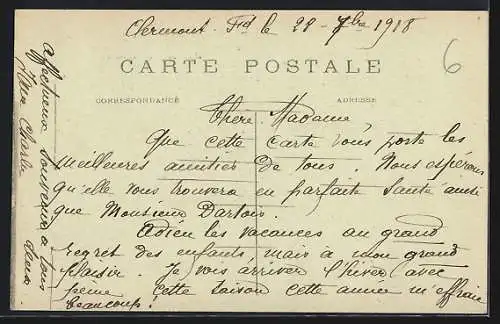 Clermont-Fd le 28-7bre 1918
6
CARTE POSTALE
CORRESPONDANCE
ADRESSE
Chère Madame,
Que cette carte vous porte les
meilleures amitiés de tous. Nous espérons
qu'elle vous trouvera en parfaite santé ainsi
que Monsieur Dartois.
Adieu les vacances au grand
regret des enfants, mais à mon grand
plaisir. Je vois arriver l'hiver avec
peine cette saison cette année m'effraie
beaucoup!
Affectueux souvenirs à tous
deux